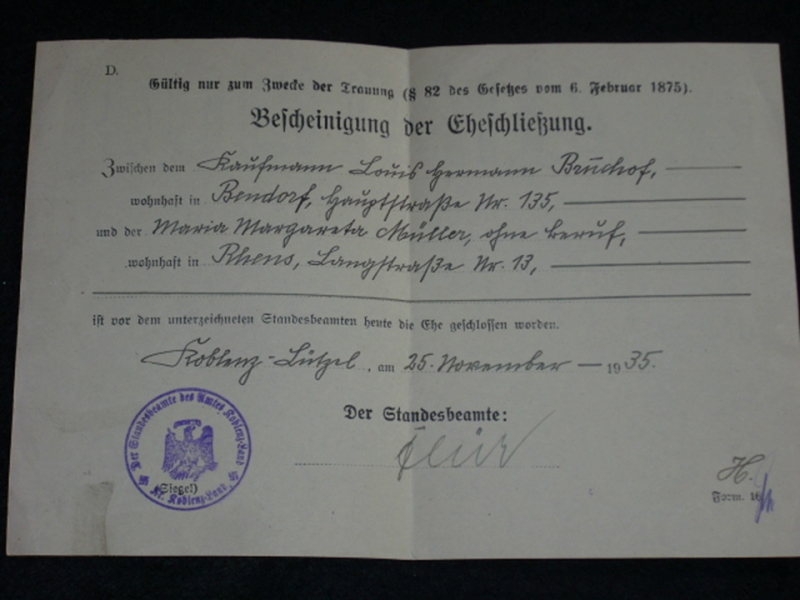 D.
Gültig nur zum Zwecke der Trauung (§ 82 des Gesetzes vom 6. Februar 1875).
Bescheinigung der Eheschließung.
Zwischen dem Kaufmann Louis Hermann Brüchof,
wohnhaft in Bendorf, Hauptstraße Nr. 135,
und der Maria Margareta Müller, ohne Beruf,
wohnhaft in Rhens, Langstraße Nr. 13,
ist vor dem unterzeichneten Standesbeamten heute die Ehe geschlossen worden.
Koblenz-Lützel, am 25. November 1935.
Der Standesbeamte:
Der Standesbeamte des Amtes Koblenz-Land
(Siegel)
Kr. Koblenz-Land
H.
Form. 16